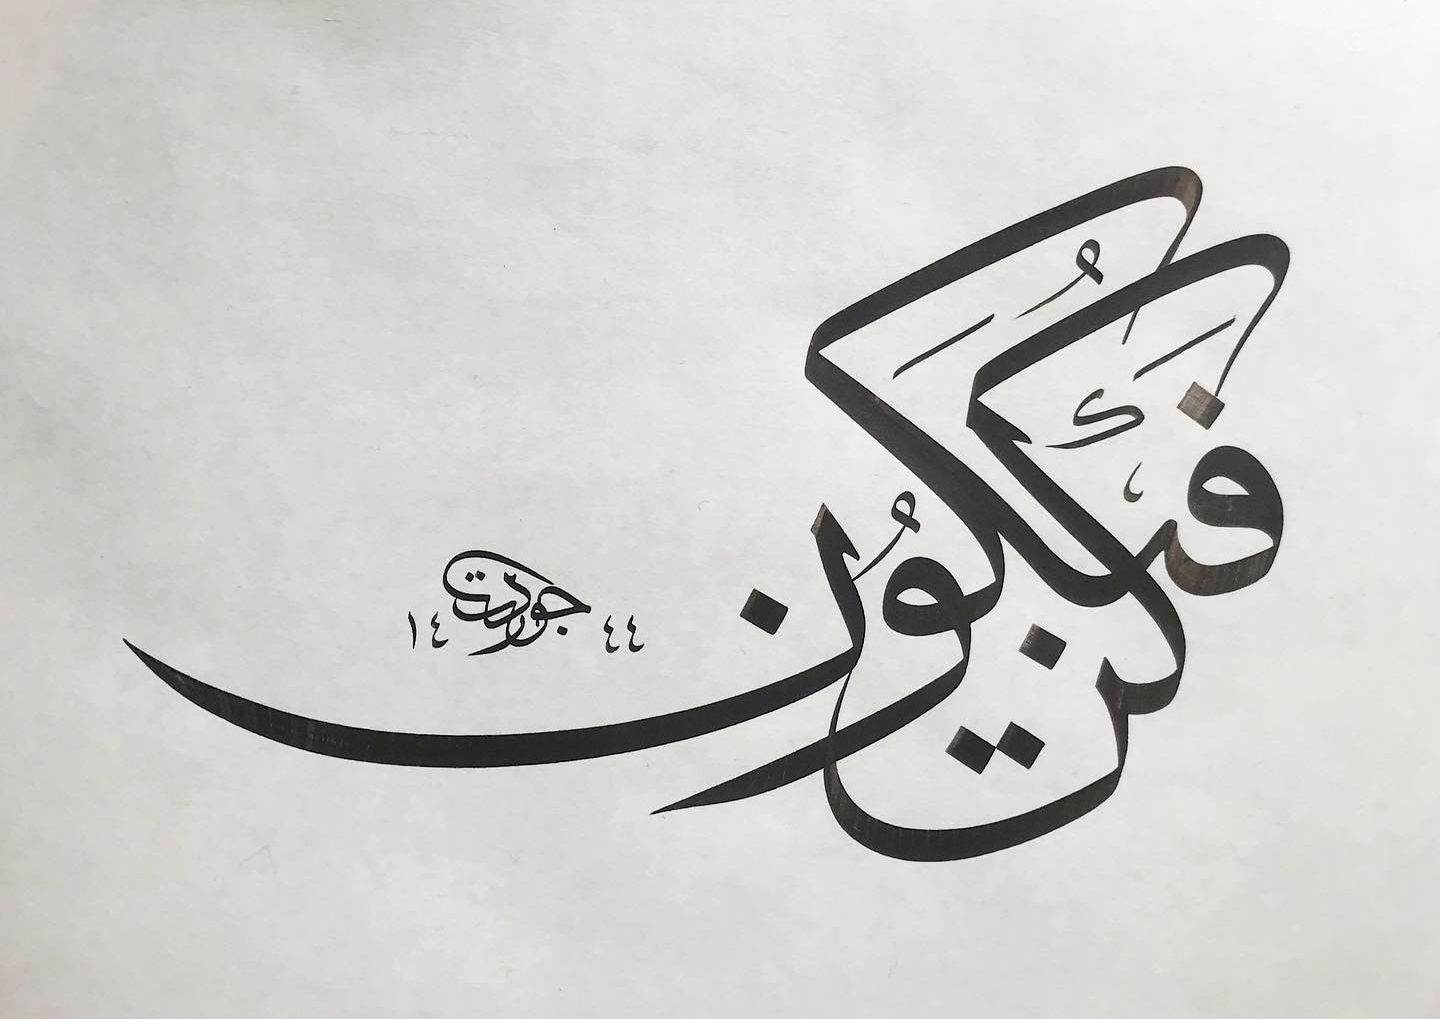 كُنْ فَيَكُونُ
جودت
١٤٤٤